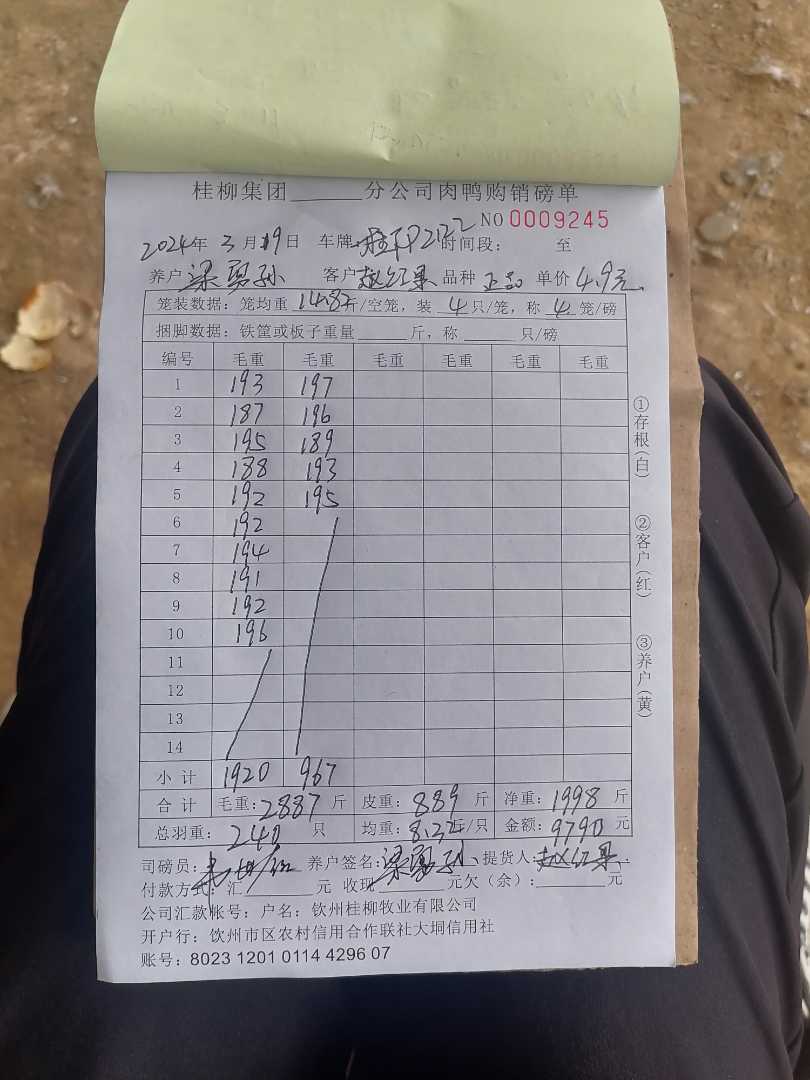 桂柳集团______分公司肉鸭购销磅单
NO 0009245
2024年 3月19日 车牌: 桂 2122 时间段: 至
养户 梁 孙 客户 赵红果 品种 正品 单价 4.9元
笼装数据: 笼均重 14.82斤/空笼, 装 4 只/笼, 称 4 笼/磅
捆脚数据: 铁筐或板子重量______斤, 称______只/磅
编号 毛重 毛重 毛重 毛重 毛重 毛重
1 193 197
2 187 196
3 195 189
4 188 193
5 192 195
6 192
7 194
8 191
9 192
10 196
11
12
13
14
小计 1920 967
合计 毛重: 2887 斤 皮重: 889 斤 净重: 1998 斤
总羽重: 240 只 均重: 8.32斤/只 金额: 9790 元
司磅员: 养户签名: 梁 孙 提货人: 赵红果
付款方式: 汇______元 收现______元欠(余):______元
公司汇款帐号: 户名: 钦州桂柳牧业有限公司
开户行: 钦州市区农村信用合作联社大垌信用社
账号: 8023 1201 0114 4296 07
①存根(白) ②客户(红) ③养户(黄)